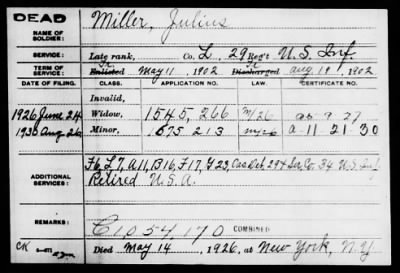 DEAD
NAME OF SOLDIER:
Miller, Julius
SERVICE:
Late rank, Co. L, 29 Reg't U.S. Inf.
TERM OF SERVICE:
Enlisted May 11, 1902 Discharged Aug. 19, 1902
DATE OF FILING.
CLASS.
APPLICATION NO.
LAW.
CERTIFICATE NO.
Invalid,
1926 June 24 Widow, 1545,266 m/26
1930 Aug 26 Minor, 1675 213 a-11 21-30
ADDITIONAL SERVICES:
Co 34 U.S. Inf
Retired U.S.A.
REMARKS:
C1054170 COMBINED
CK
Died May 14, 1926, at New York, N.Y.